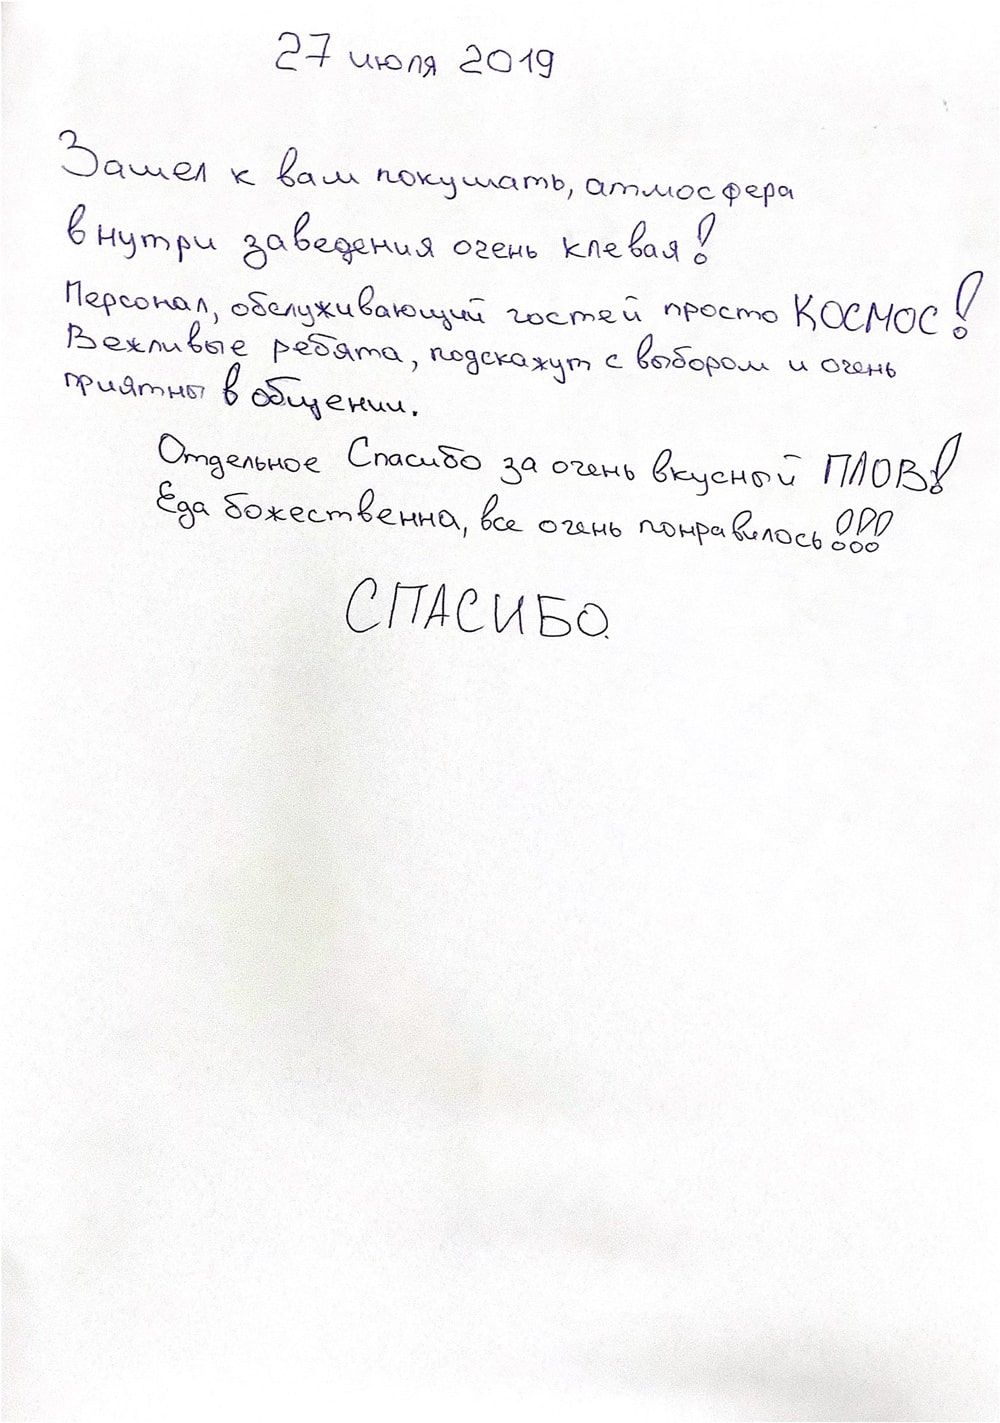 27 июля 2019
Зашел к вам покушать, атмосфера
внутри заведения очень клевая!
Персонал, обслуживающий гостей просто КОСМОС!
Вежливые ребята, подскажут с выбором и очень
приятны в общении.
Отдельное Спасибо за очень вкусный ПЛОВ!
Еда божественна, все очень понравилось!!!
СПАСИБО.